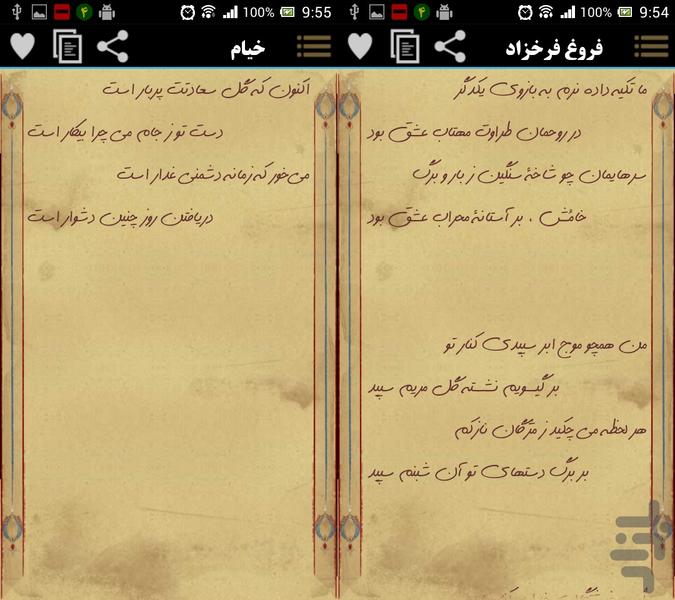 100% 9:54
فروغ فرخزاد
ما تکیه داده نرم به بازوی یکدگر
در روحمان طراوت مهتاب عشق بود
سرهایمان چو شاخهٔ سنگین ز بار و برگ
خامش ، بر آستانهٔ محراب عشق بود
من همچو موج ابر سپیدی کنار تو
بر گیسویم نشسته گل مریم سپید
هر لحظه می چکید ز مژگان نازکم
بر برگ دستهای تو آن شبنم سپید
۴ 100% 9:55
خیام
اکنون که گل سعادتت پربار است
دست تو ز جام می چرا بیکار است
می‌خور که زمانه دشمنی غدار است
دریافتن روز چنین دشوار است
بازار